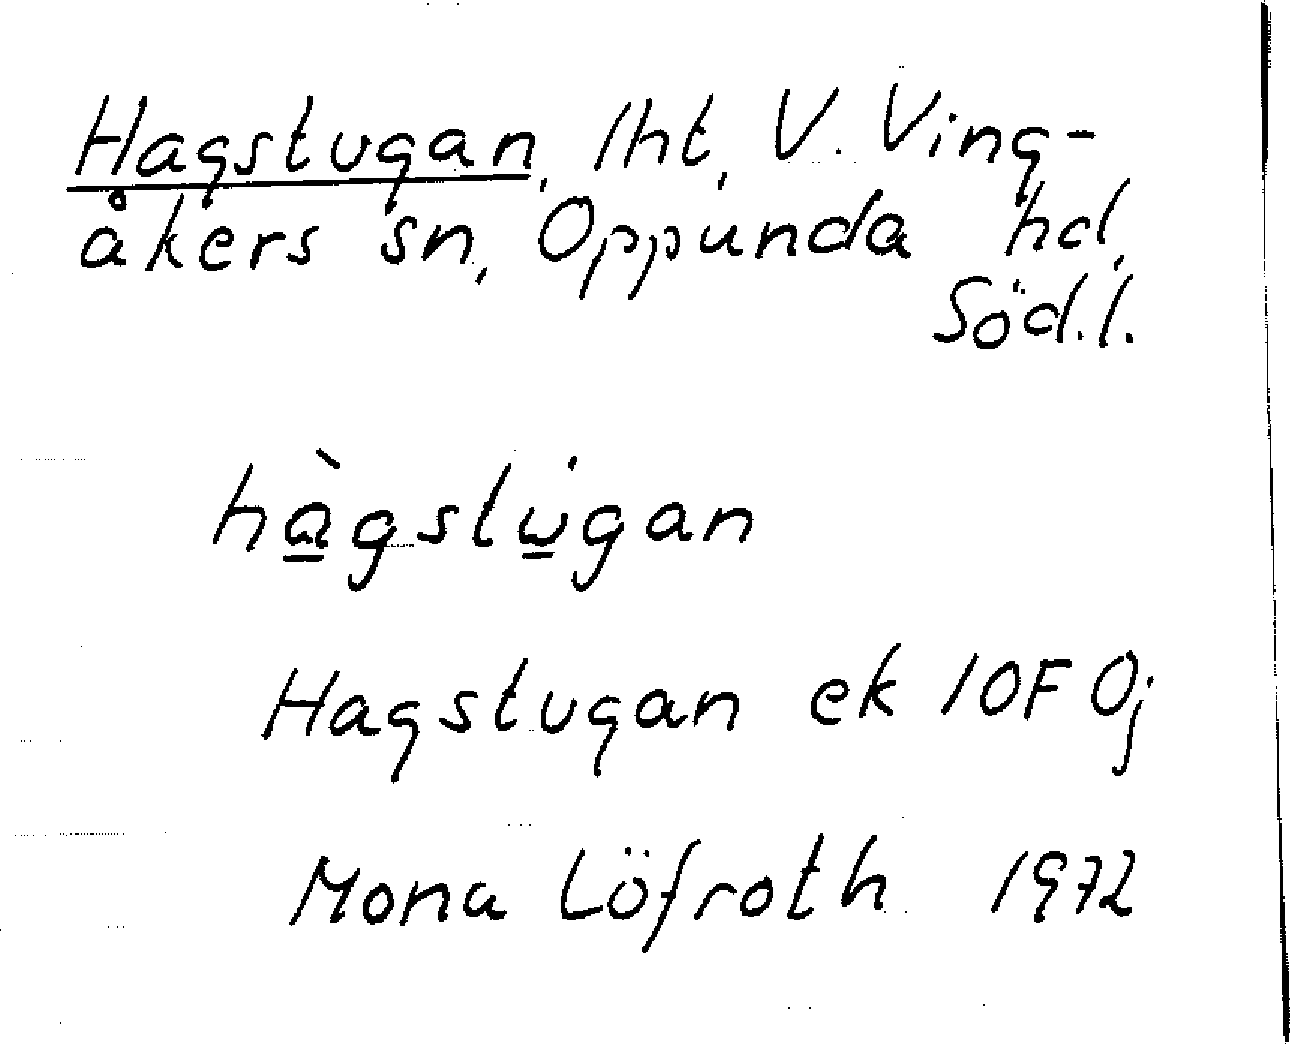 Hagstugan, lht, V. Ving-
åkers sn, Oppunda hd,
Söd.l.
hà̱gstu̱̇gan
Hagstugan ek 10F 0j
Mona Löfroth 1972